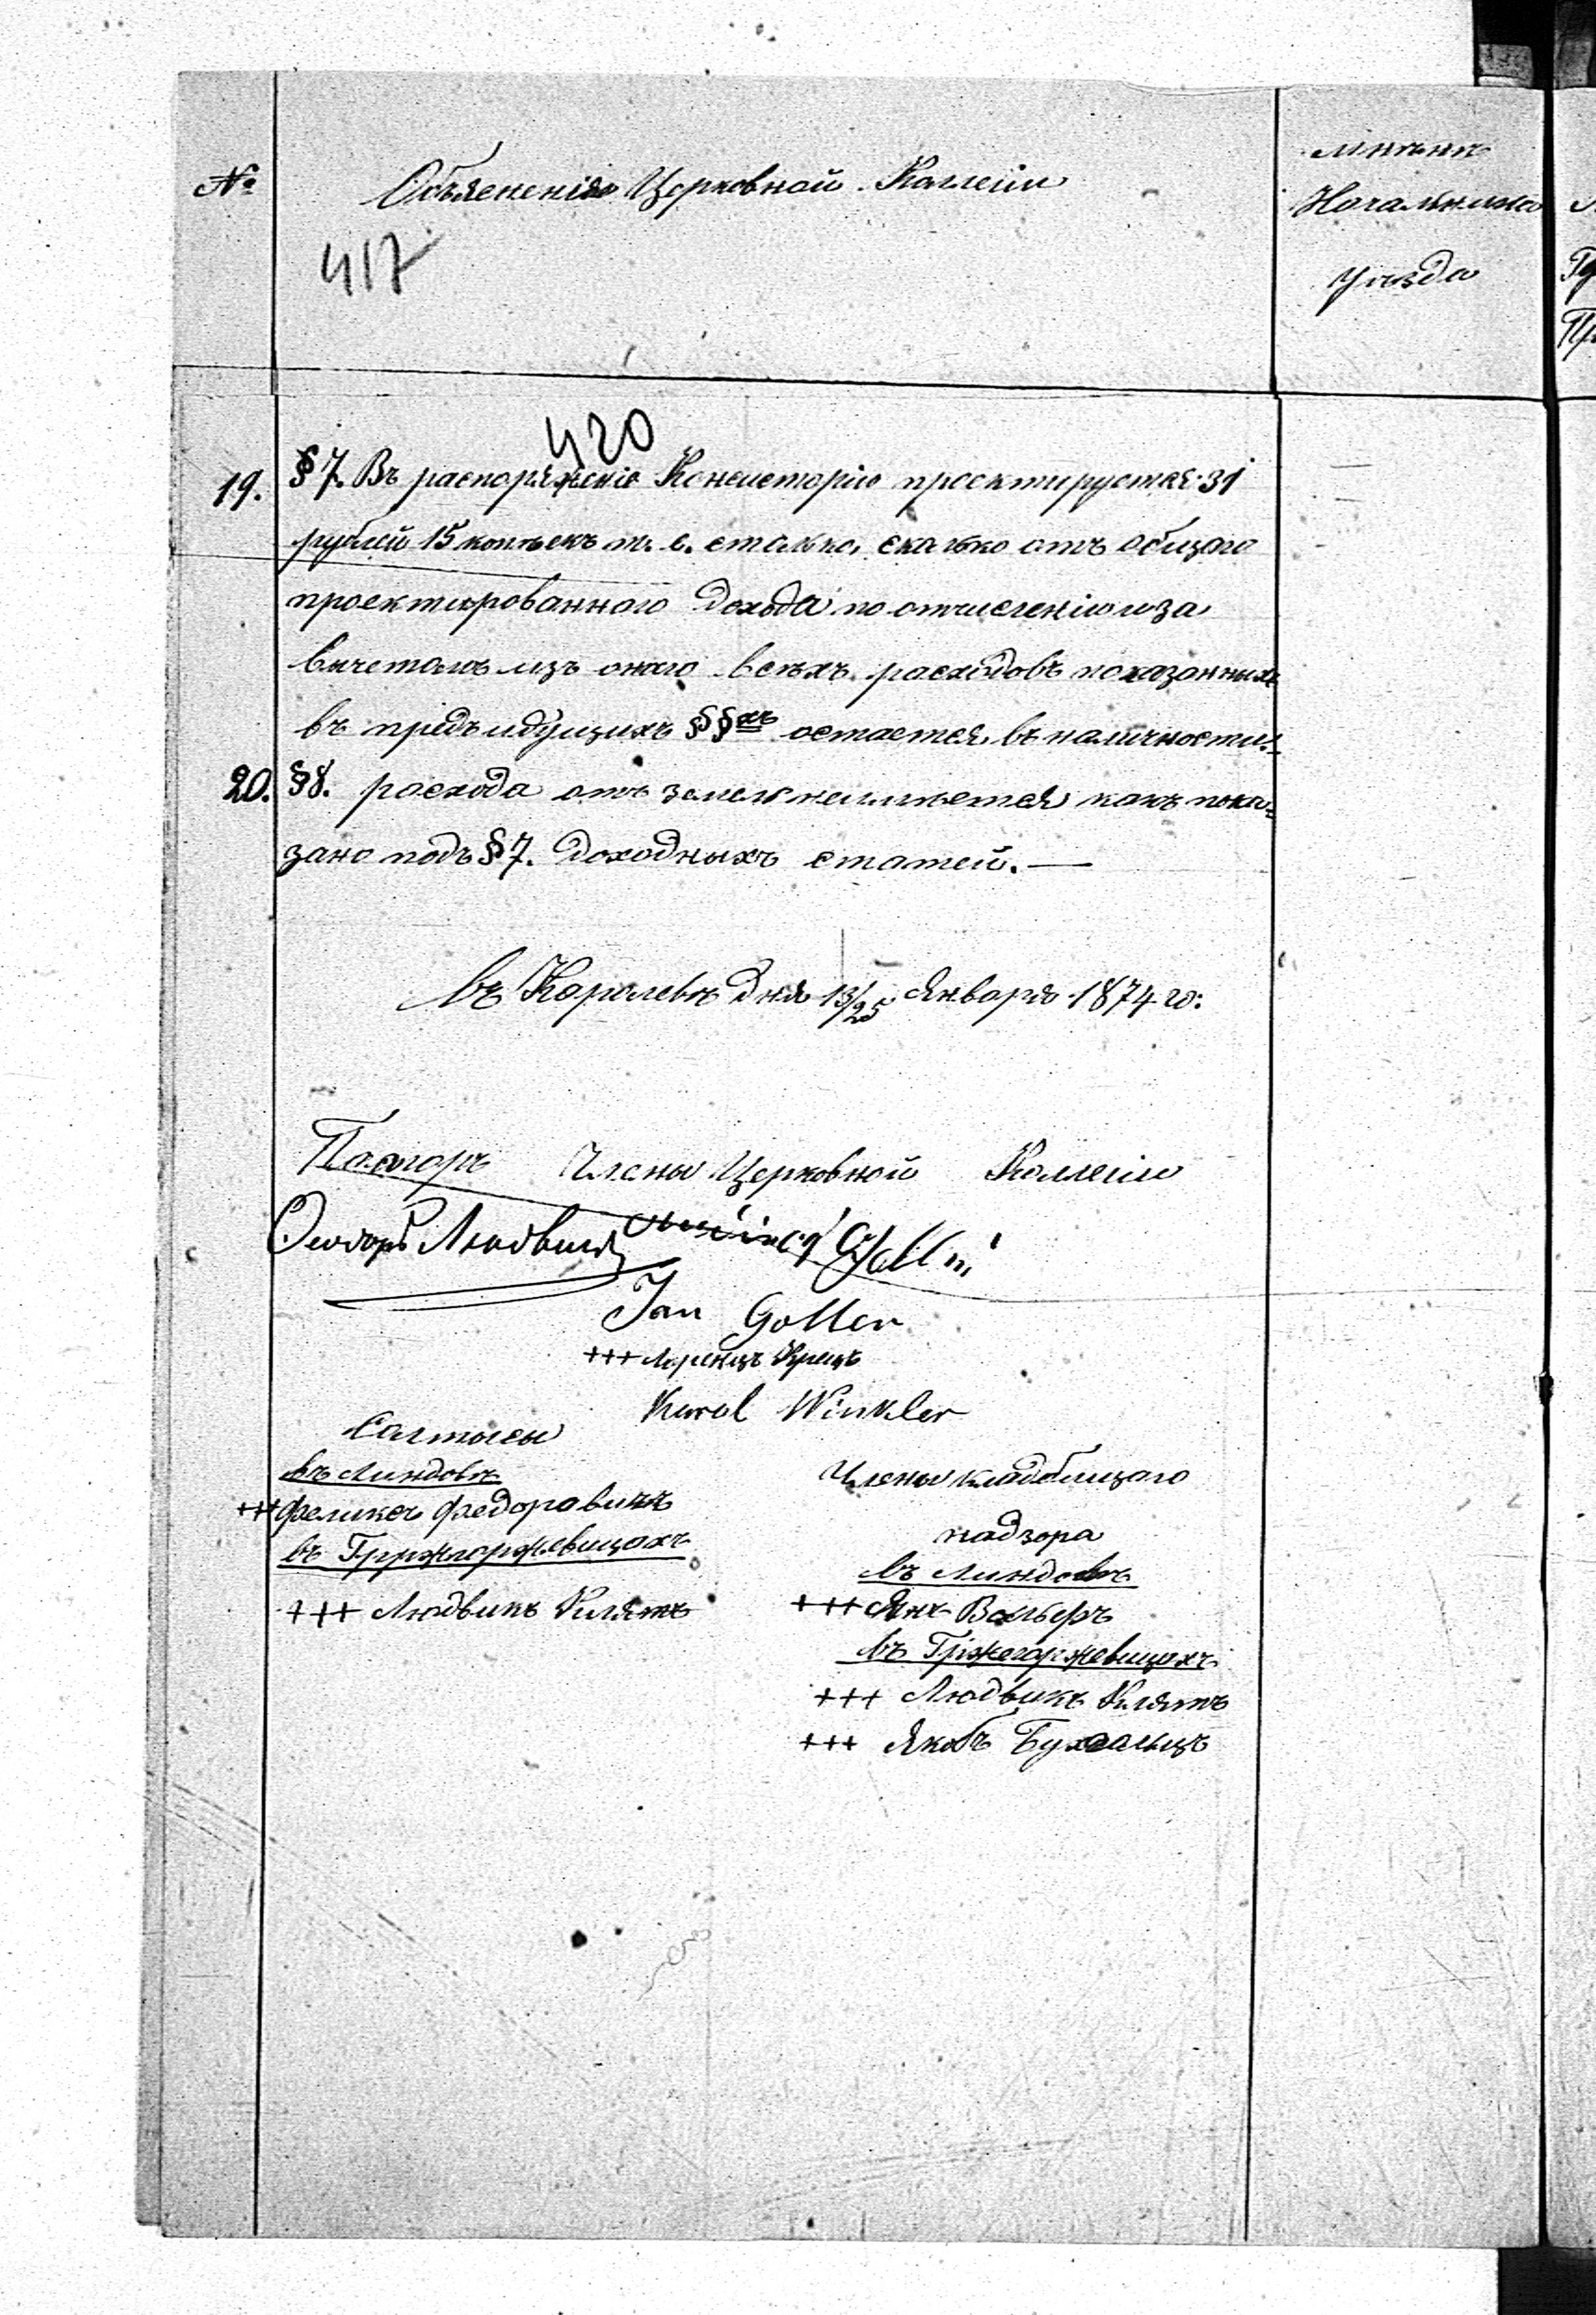 №
Объясненія Церковной Коллегіи
Мнѣніе
Начальника
Уѣзда
417
420
19. § 7. Въ распоряженіе Консисторіи проектируется 31
рублей 15 копѣекъ т. е. столько, сколько отъ общаго
проектированнаго дохода по отчисленію и за
вычетомъ изъ онаго всѣхъ расходовъ показанныхъ
въ предъидущихъ §§хъ остается въ наличности.
20. § 8. расхода отъ земель неимѣется какъ пока-
зано подъ § 7. доходныхъ статей. —
въ Королевѣ дня 13/25 Января 1874 го:
Пасторъ Члены Церковной Коллегіи
Людвигъ
Jan Goller
+++ Лоренцъ Крецъ
Karol Winkler
Солтысы
въ Линдовѣ
+++ Феликсъ Федоровичъ
въ Гржегоржевицахъ
+++ Людвикъ Клятъ
Члены кладбищаго
надзора
въ Линдовѣ
+++ Янъ Вольферъ
въ Гржегоржевицахъ
+++ Людвикъ Клятъ
+++ Якобъ Бухгольцъ